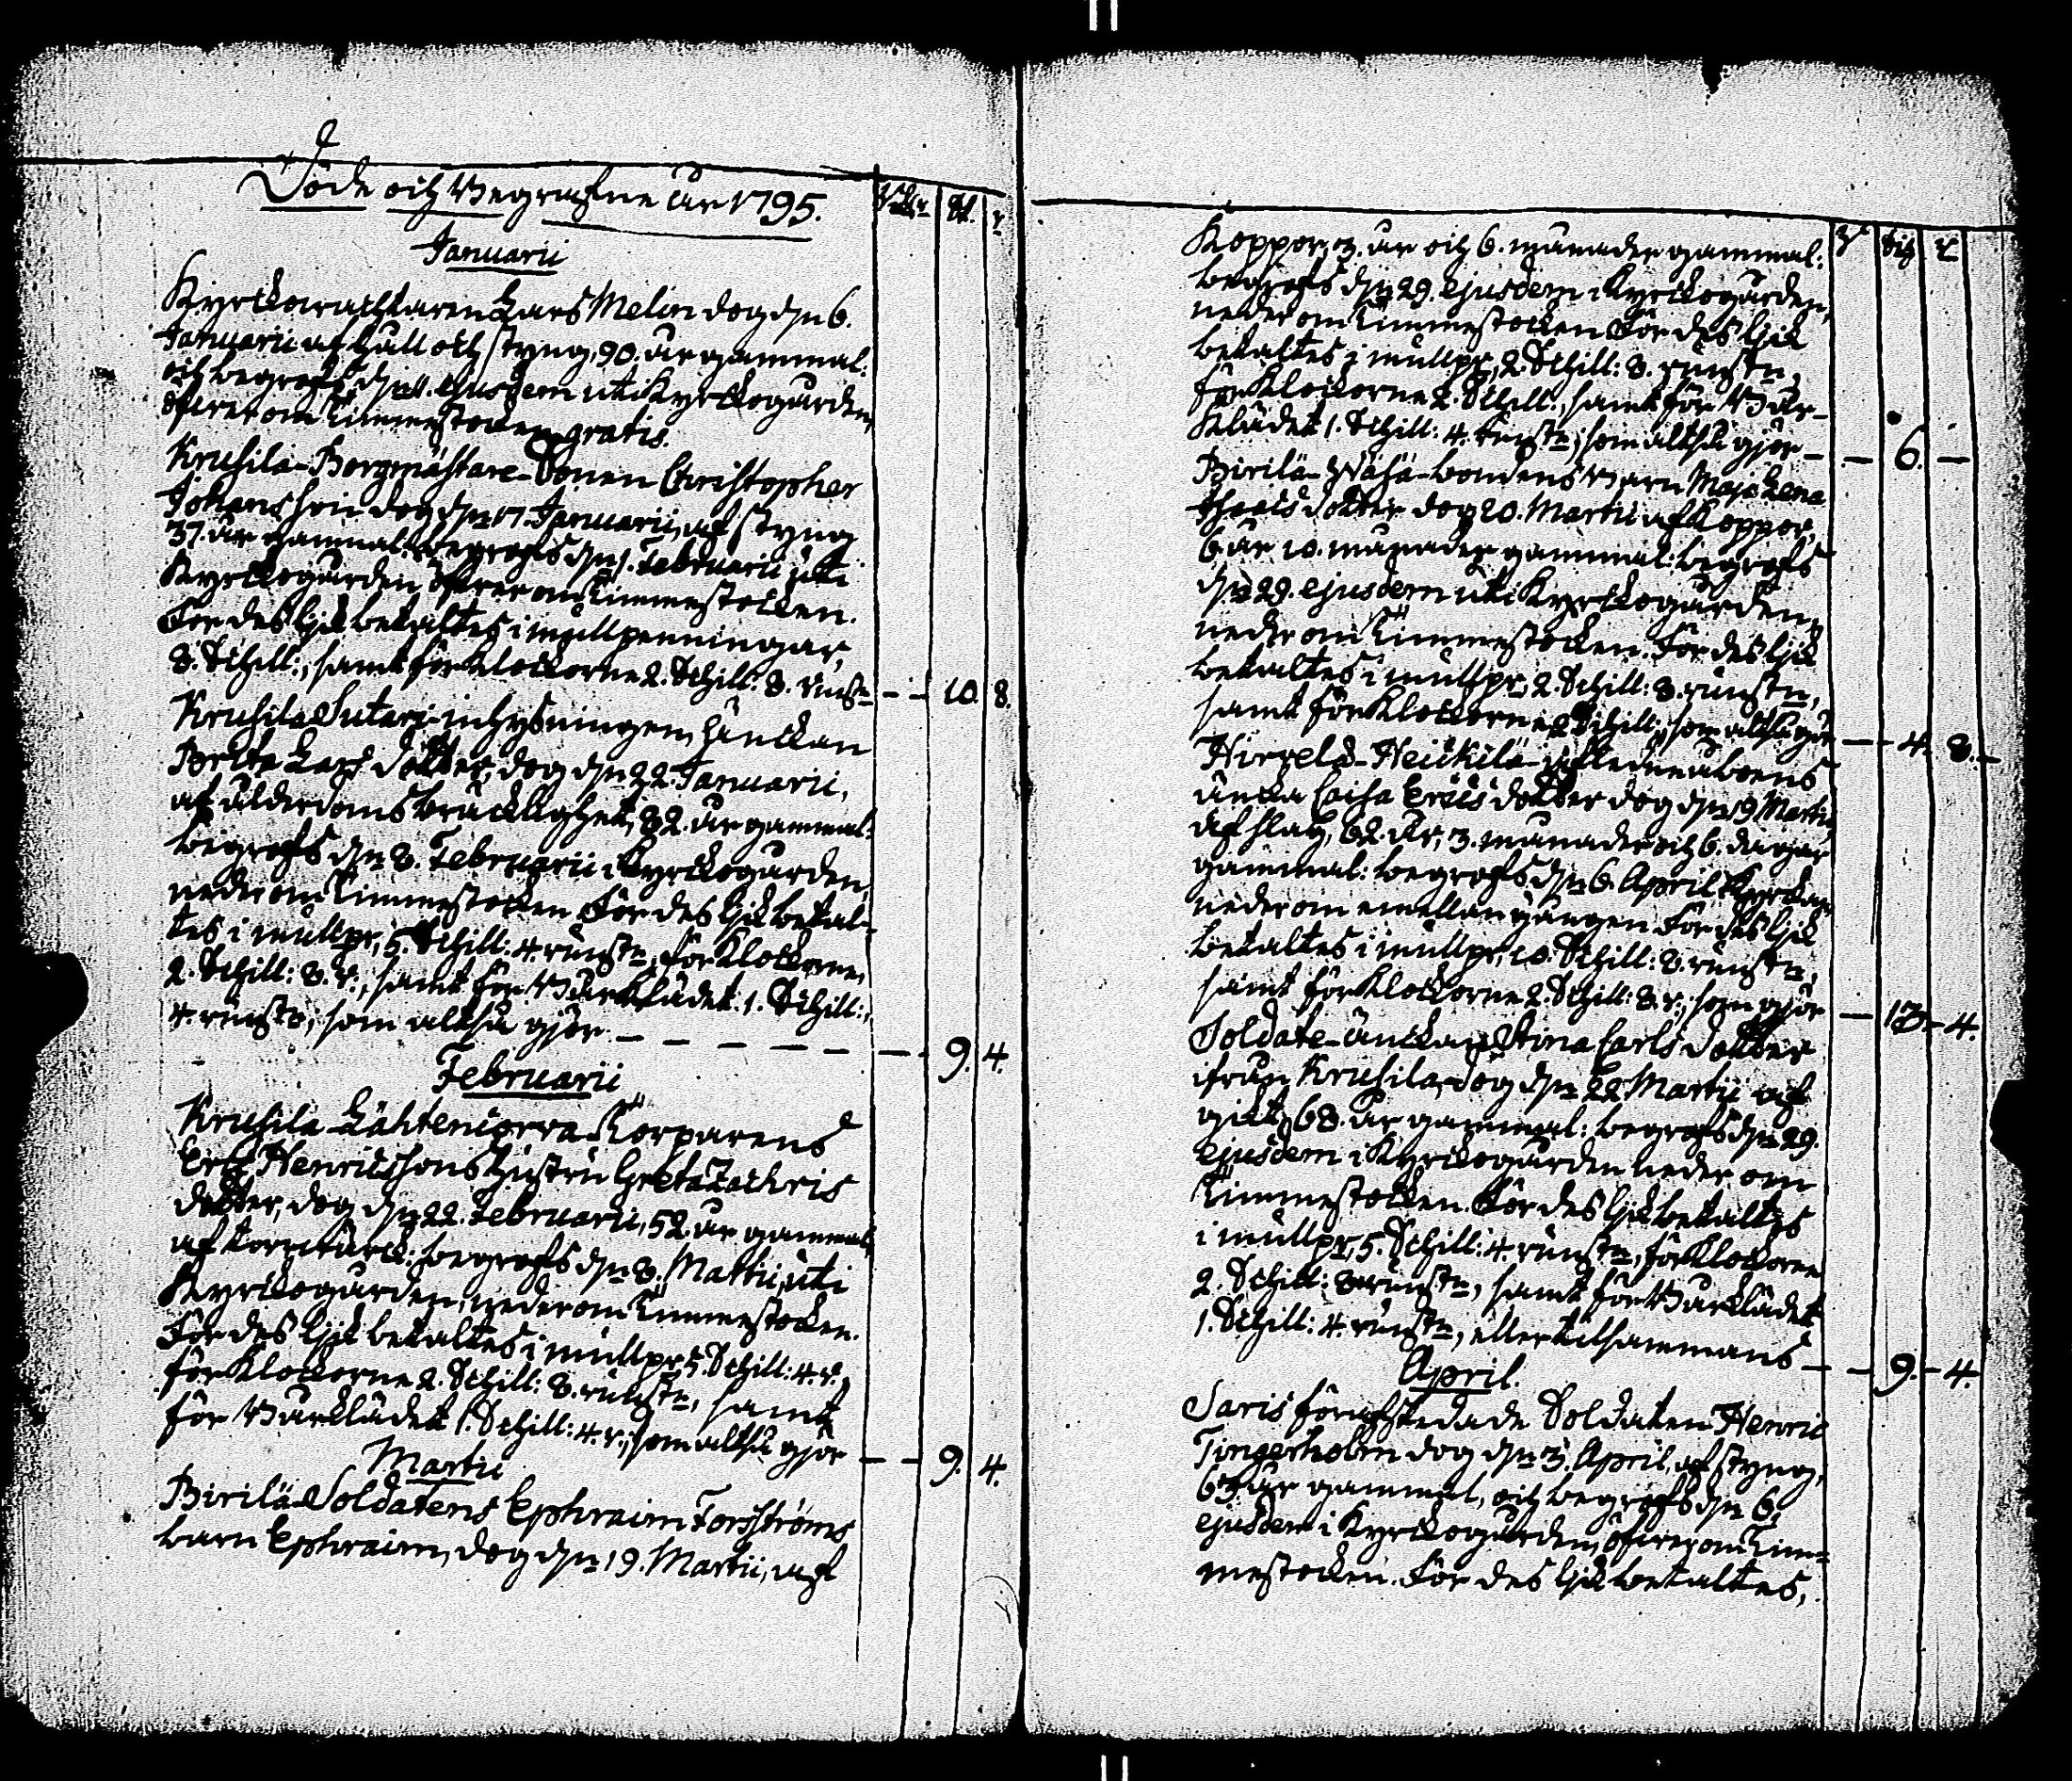 Döde och Begrafne år 1795. Rdr Sk. r
Januarii
Kyrckowachtaren Lars Melin dog d:n 6.
Januarii af håll och styng, 90. år gammal:
och begrofs d:n 11. ejusdem uti Kyrckogården,
öfwer om Timmerstocken gratis.
Krusila-Borgmästare-Sonen Christopher
Johansson dog d:n 17. Januarii, af styng
37. år gammal: begrofs d:n 1. Februarii uti
Kyrckogården öfwer om Timmerstocken.
För des lijk betaltes i mullpenningar,
8. Schill:, samt för klockorne 2. Schill: 8. runst:r — — 10. 8.
Krusila Sutari-inhysningen, Änckan
Brita Lars dotter, dog d:n 22. Januarii,
af ålderdoms bräcklighet, 82. år gammal:
begrofs d:n 8. Februarii i Kyrckogården,
neder om Timmerstocken. För des lijk betal-
tes i mullp:r, 5. Schill: 4. runst:r, för klockorne,
2. Schill: 8. r:, samt för Bårklädet 1. Schill:,
4. runst:r; som altså gjör — — — — — — 9. 4.
Februarii
Krusila-Lähteniorra-Torparens
Eric Henricssons hustru Greta Zachris
dotter, dog d:n 22. Februarii, 52. år gammal,
af torrwärck: begrofs d:n 8. Martii, uti
Kyrckogården, neder om Timmerstocken.
För des lijk betaltes i mullp:r 5. Schill: 4. r.,
för klockorne 2. Schill: 8. runst:r, samt
för Bårklädet 1. Schill: 4. r.; som altså gjör — — 9. 4.
Martii
Birilä-Soldatens Ephraim Forsströms
barn Ephraim, dog d:n 19. Martii, af
R Sch r
Koppor, 3. år och 6. månader gammal:
begrofs d:n 29. ejusdem i Kyrckogården,
neder om Timmerstocken. För des lijk
betaltes i mullp:r, 2. Schill: 8. runst:r,
för klockorne 2. Schill:, samt för Bår-
klädet 1. Schill: 4. runst:r; som altså gjör — — 6. —
Birilä-Wähä-bondens barn Maja Lena
dotter dog 20. Martii af Koppor,
6. år 10. månader gammal: begrofs
d:n 29. ejusdem uti Kyrckogården,
neder om Timmerstocken. För des lijk
betaltes i mullp:r, 2. Schill: 8. runst:r,
samt för klockorne 2 Schill:; som altså gjör — — 4. 8. —
Hirvelä-Heickilä- afledne åboens
äncka Caisa Erics dotter dog d:n 19 Martii,
af slag, 62. år, 3. månader och 6. dagar
gammal: begrofs d:n 6. April i Kyrckan
neder om emellan gången. För des lijk
betaltes i mullp:r, 10. Schill: 8. runst:r,
samt för klockorne 2. Schill: 8 r.; som gjör — 13 — 4.
Soldate-änckan Stina Carls dotter
ifrån Krusila, dog d:n 22 Martii af
gikt, 68. år gammal: begrofs d:n 29.
ejusdem i Kyrckogården neder om
Timmerstocken. För des lijk betaltes
i mullp:r, 5. Schill: 4. runst:r, för klockorne
2. Schill: 8. runst:r, samt för Bårklädet
1. Schill: 4. runst:r, eller tilsammans — — 9. — 4.
April.
Saris förafskedade Soldaten Henric
Tingerholm dog d:n 3. April, af styng,
63 år gammal, och begrofs d:n 6.
ejusdem i Kyrckogården, öfwer om Tim-
merstocken. För des lijk betaltes,